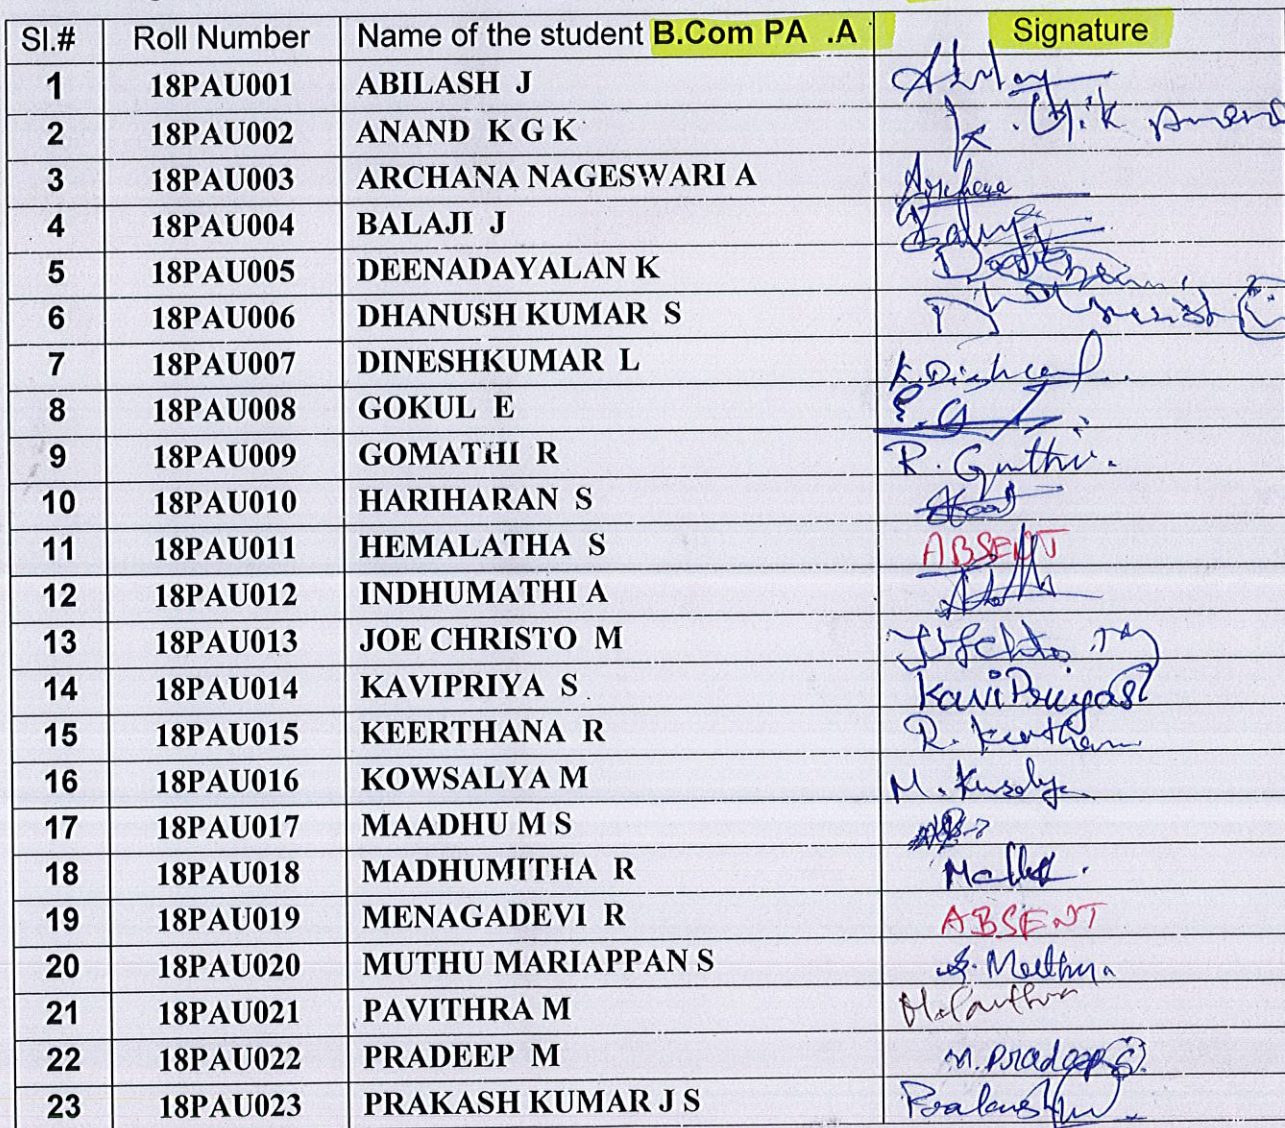 Sl.# Roll Number Name of the student B.Com PA .A Signature
1 18PAU001 ABILASH J
2 18PAU002 ANAND K G K
3 18PAU003 ARCHANA NAGESWARI A
4 18PAU004 BALAJI J
5 18PAU005 DEENADAYALAN K
6 18PAU006 DHANUSH KUMAR S
7 18PAU007 DINESHKUMAR L
8 18PAU008 GOKUL E
9 18PAU009 GOMATHI R
10 18PAU010 HARIHARAN S
11 18PAU011 HEMALATHA S ABSENT
12 18PAU012 INDHUMATHI A
13 18PAU013 JOE CHRISTO M
14 18PAU014 KAVIPRIYA S
15 18PAU015 KEERTHANA R
16 18PAU016 KOWSALYA M
17 18PAU017 MAADHU M S
18 18PAU018 MADHUMITHA R
19 18PAU019 MENAGADEVI R ABSENT
20 18PAU020 MUTHU MARIAPPAN S
21 18PAU021 PAVITHRA M
22 18PAU022 PRADEEP M M. Pradeep
23 18PAU023 PRAKASH KUMAR J S